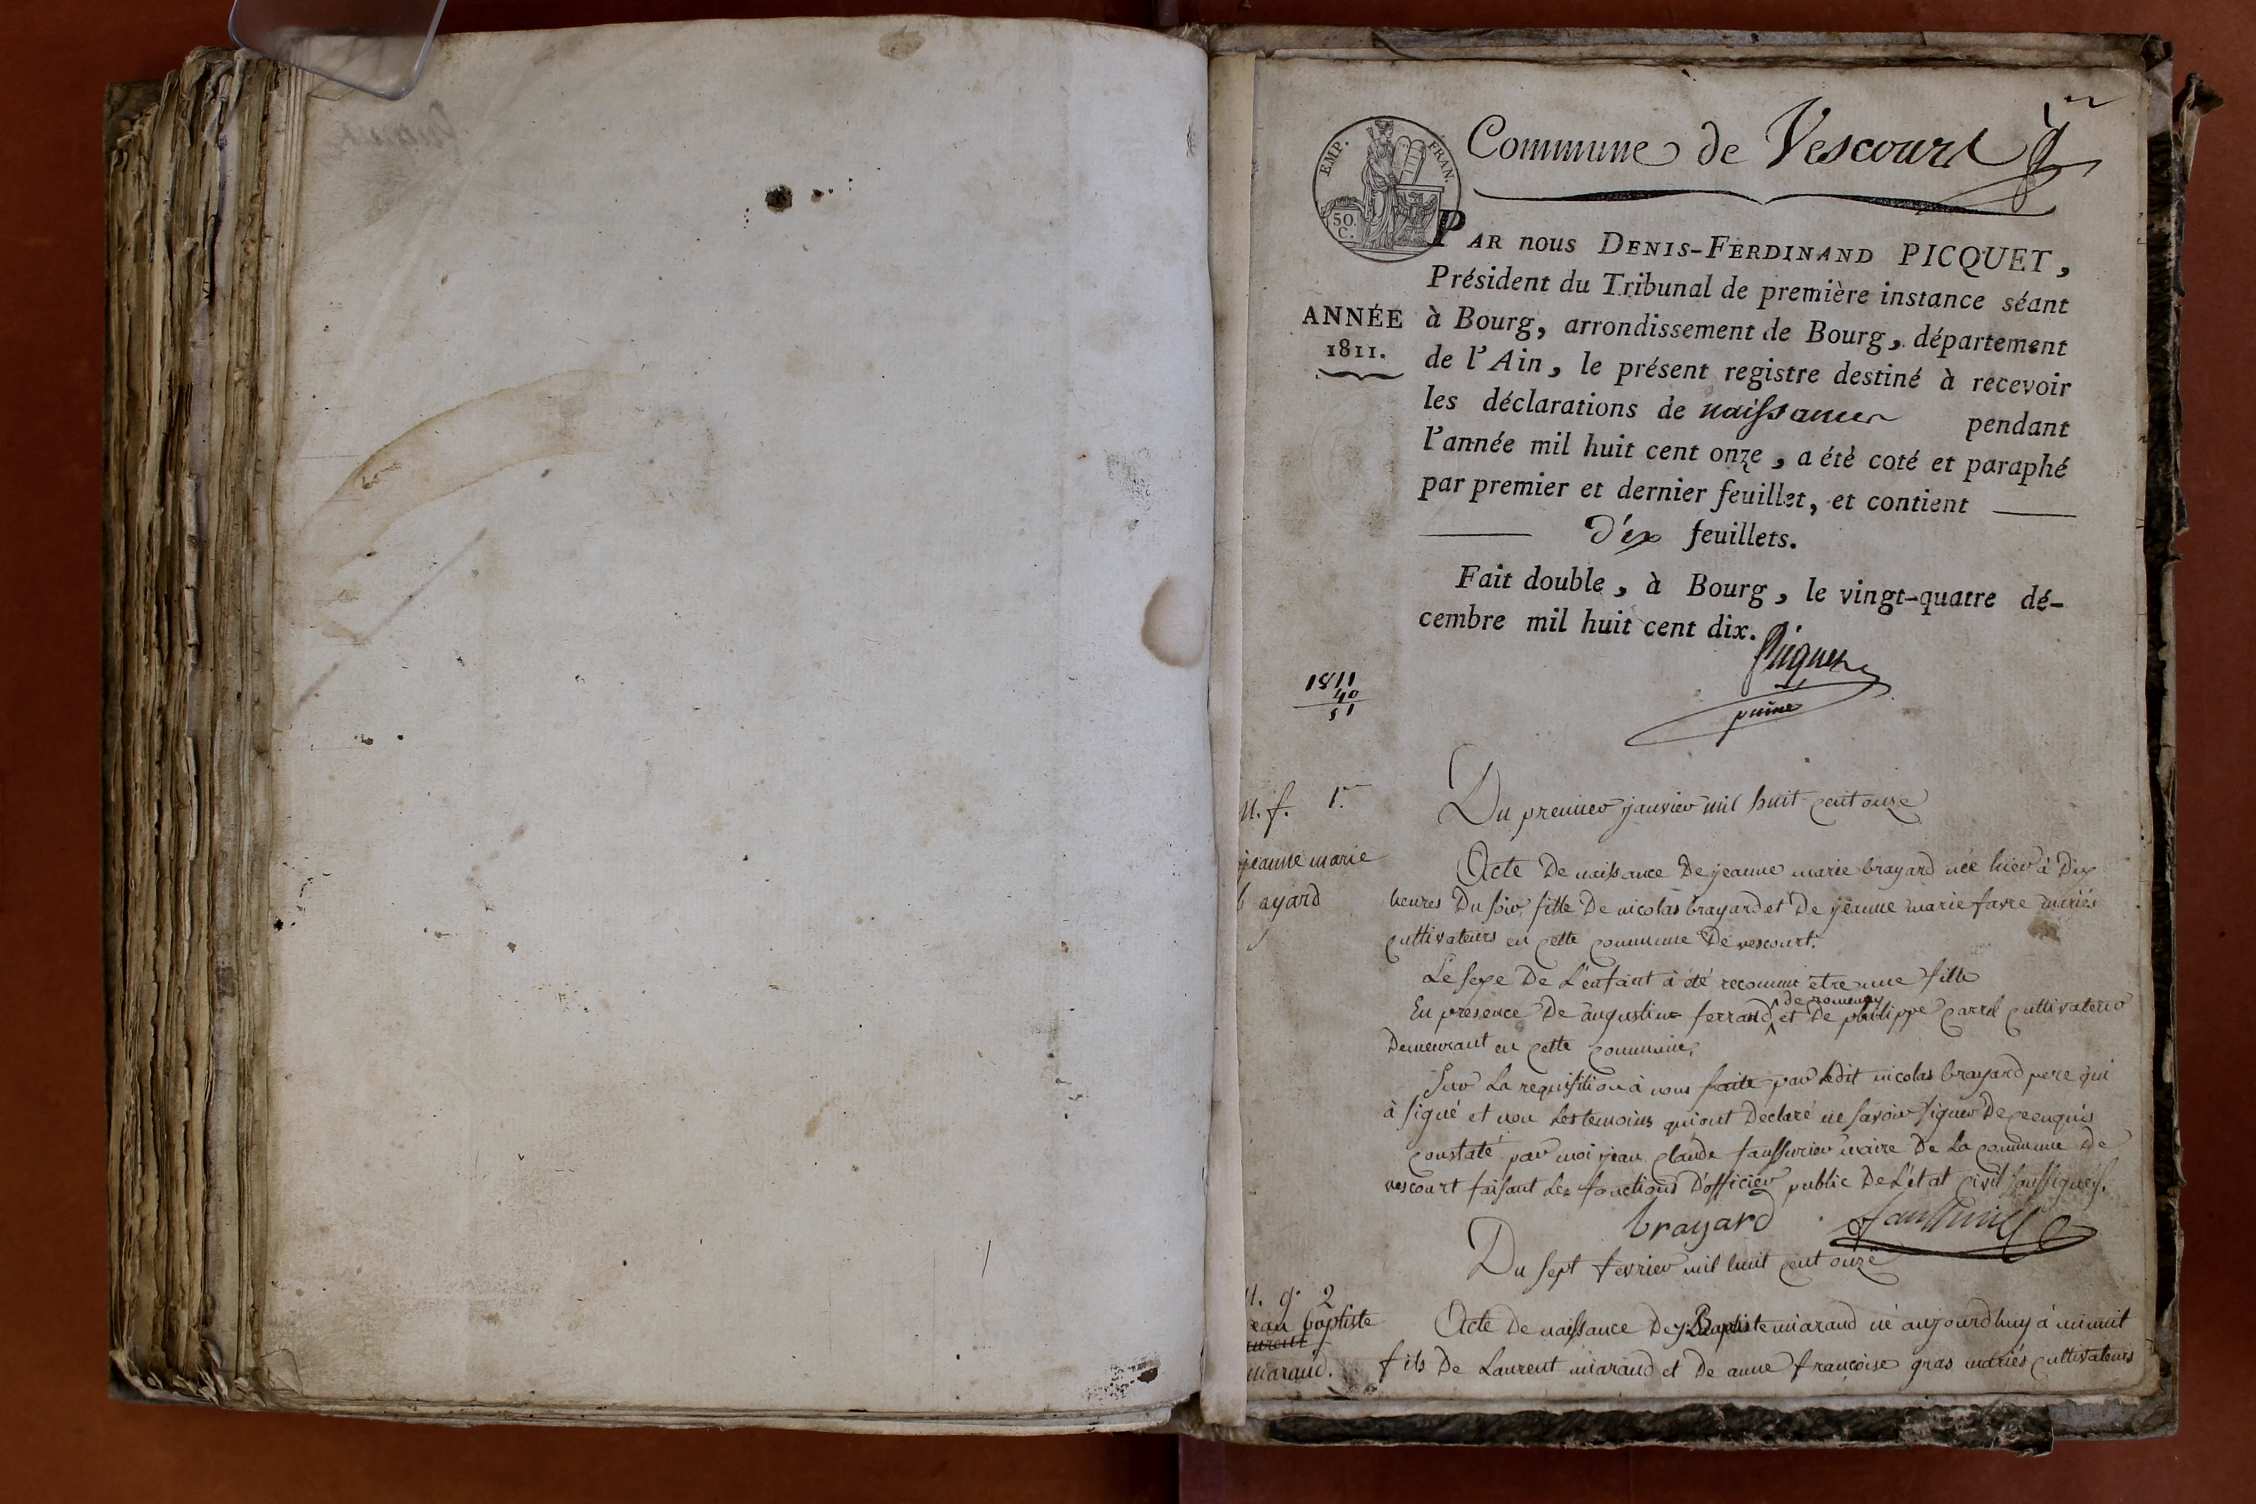 Commune de Vescourt
EMP. FRAN.
50 C.
PAR nous DENIS-FERDINAND PICQUET,
Président du Tribunal de première instance séant
ANNÉE
1811.
à Bourg, arrondissement de Bourg, département
de l'Ain, le présent registre destiné à recevoir
les déclarations de naissances pendant
l'année mil huit cent onze, a été coté et paraphé
par premier et dernier feuillet, et contient
dix feuillets.
Fait double, à Bourg, le vingt-quatre dé-
cembre mil huit cent dix.
Picquet
1811
40
51
n. f. 1.er
Du premier janvier mil huit cent onze
jeanne marie
ayard
Acte De naissance De jeanne marie brayard née hier à Dix
heures Du soir, fille De nicolas brayard et De jeanne marie favre mariés
cultivateurs en cette commune De vescourt.
Le sexe De L'enfant à été reconnu etre une fille
En presence De augustin ferrand de romenay et De philippe carrel cultivateur
Demeurant en cette commune,
Sur La requisition à nous faite par ledit nicolas brayard pere qui
à signé et non Les temoins qui ont Declaré ne savoir signer De ce enquis
constaté par moi jean claude faussurier maire De La commune de
vescourt faisant Les fonctions D'officier public De L'état civil soussignés.
brayard
Du sept fevrier mil huit cent onze
n. g. 2
ean baptiste
maraud.
Acte De naissance De j. Baptiste miaraud né aujourdhuy à minuit
fils De Laurent miaraud et De anne françoise gras mariés cultivateurs